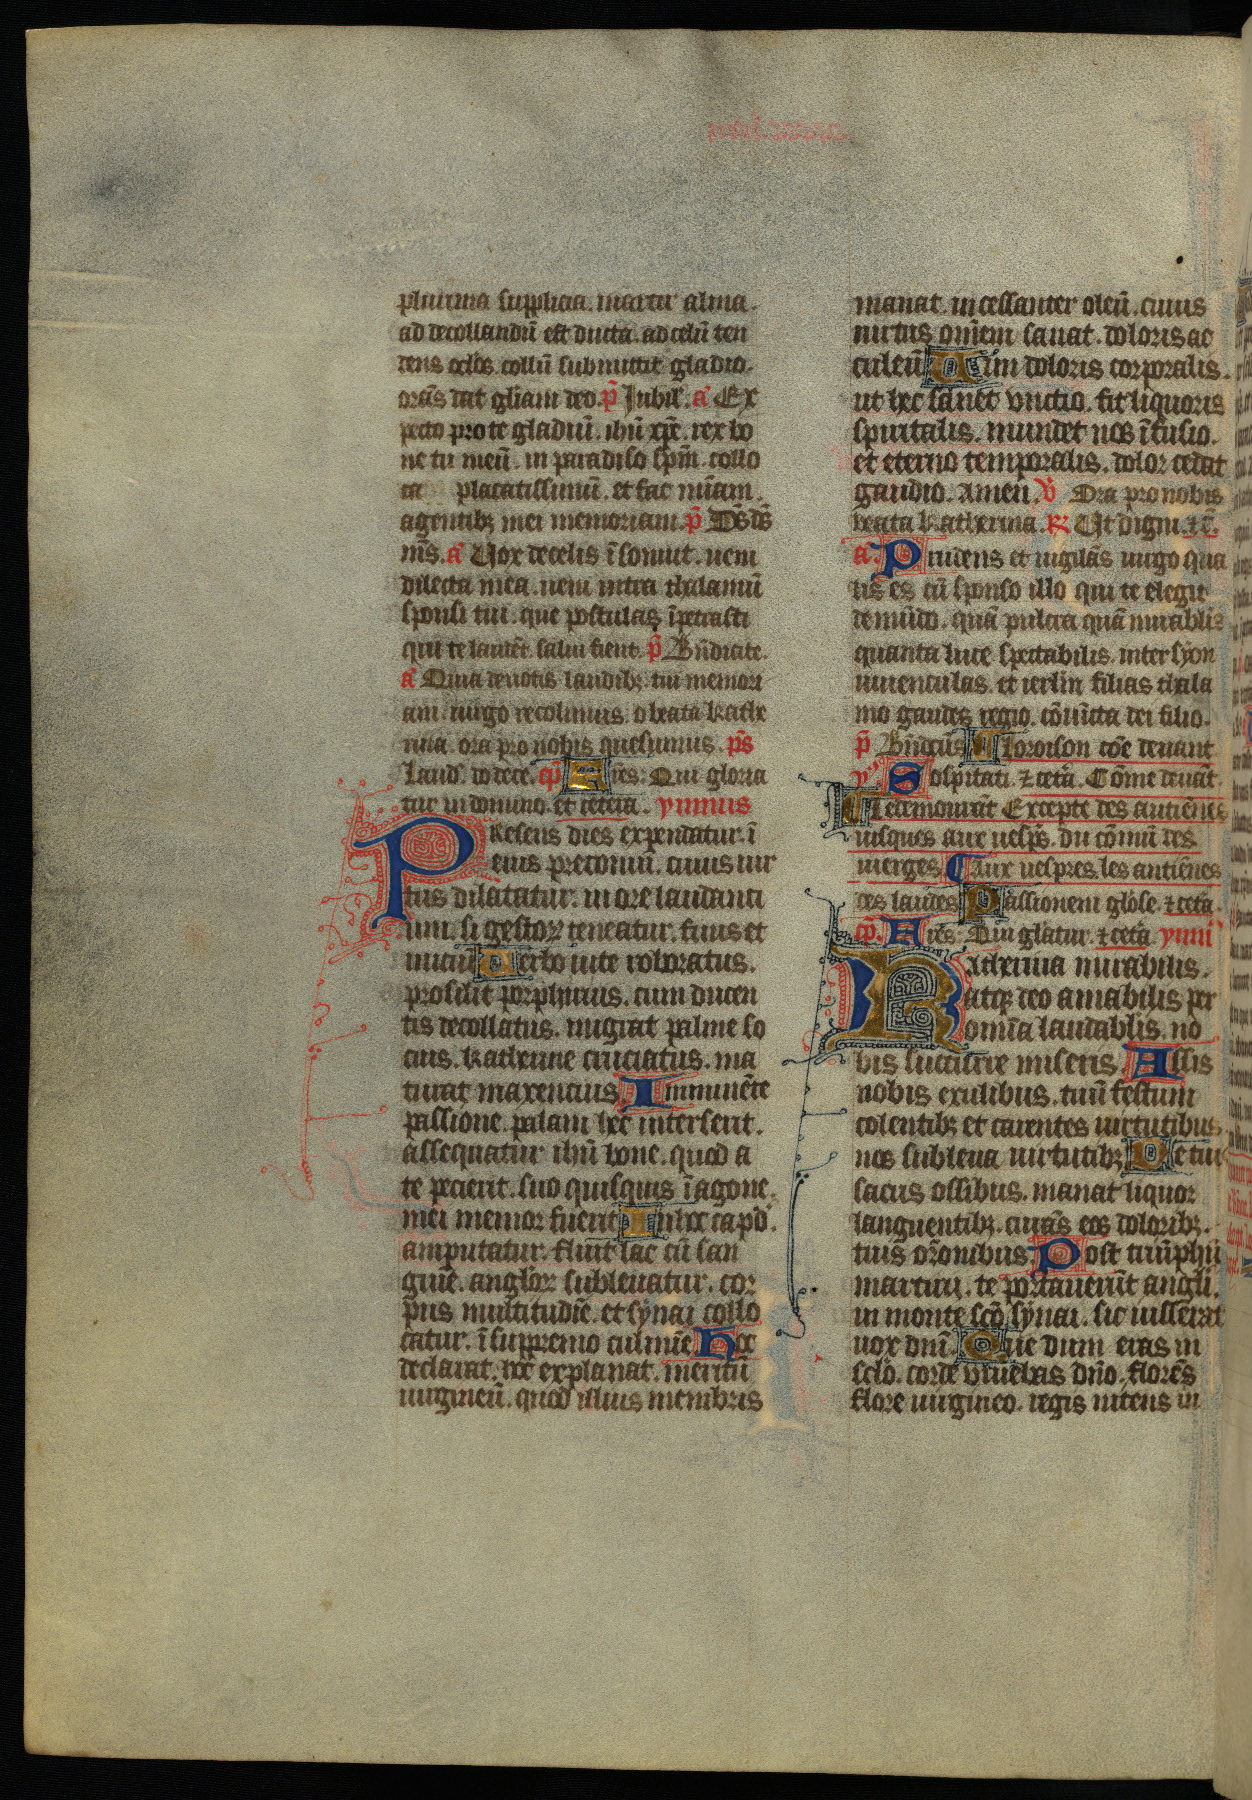 plurima supplicia. martir alma.
ad decollandū est ducta. ad celū ten
dens oclōs. collū submittit gladio.
orās dat gliam deo. p̄ Jubil. a Ex
pecto pro te gladiū. ihū xpē. rex bo
ne tu meū. in paradiso sp̄m. collo
ca placatissimū. et fac mīam.
agentibꝫ mei memoriam. p̄ Ds̄ ds̄
ms̄. a Uox de celis īsonuit. ueni
dilecta mea. ueni intra thalamū
sponsi tui. que postulas īpetrasti
qui te laudēt. salui fient. p̄ Bn̄dicite.
a Quia deuotis laudibꝫ. tui memori
am. uirgo recolimus. o beata kathe
rina. ora pro nobis quesumus. ps̄
laud. do dece. cp̄ Aīes: Qui gloria
tur in domino. et cetera. ymnus
Presens dies expendatur. ī
eius preconiū. cuius uir
tus dilatatur. in ore laudanti
um. si gestoꝝ teneatur. finis et
iniciū Uerbo uite roboratus.
prosilit porphirius. cum ducen
tis decollatus. migrat palme so
cius. katherine cruciatus. ma
turat maxencius Imminēte
passione. palam hec interserit.
assequatur ihū bone. quod a
te pecierit. suo quisquis ī agone.
mei memor fuerit In hec cap̄d.
amputatur. fluit lac cū san
guīe. angl̄oꝝ subleuatur. cor
pus multitudīe. et synai collo
catur. ī supremo culmīe Hec
declarat. hec explanat. meritū
uirgineū. quod illius membris
manat. incessanter oleū. cuius
uirtus om̄em sanat. doloris ac
culeū Uim doloris corporalis.
ut hec sanet unctio. fit liquoris
spiritalis. mundet nos īfusio.
et eterno temporalis. dolor cedat
gaudio. Amen. v̄ Ora pro nobis
beata katherina. ꝶ Ut digni. ⁊c̄.
a Prudens et uigilās uirgo qua
lis es cū sponso illo qui te elegit
de mūdo. quā pulcra quā mirabil̄is
quanta luce spectabilis. inter syon
iuuenculas. et ierlm filias thala
mo gaudes regio. cōiūcta dei filio.
p̄ Bn̄dc̄us Loroison cōe deuant
Sospitati. ⁊ ceta. Cōme deuāt.
Te demourāt Excepte des antienes
iusques aux uelps̄. du cōmū des
uierges. Aux uelpres. les antienes
des laudes Passionem glōse. ⁊ ceta.
cp̄. Aīes. Qui gl̄atur. ⁊ ceta. ymn̄
Katherina mirabilis.
atqꝫ deo amabilis per
omīa laudabl̄is. no
bis succurre miseris. Assis
nobis exulibus. tuū festum
colentibꝫ et carentes uirtutibus.
nos subleua uirtutibꝫ De tuis
sacris ossibus. manat liquor
languentibꝫ. curās eos doloribꝫ.
tuis or̄onibus. Post triūphū
martirii. te portauerūt angl̄i.
in monte sc̄o synai. sic iusserat
uox dn̄i. Que dum eras in
sclō. corde uiuebas dn̄o. florēs
flore uirgineo. regis nitens in